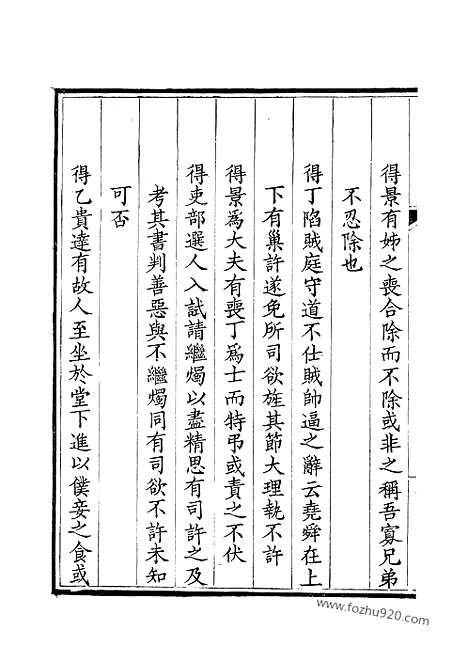 得景有姊之喪合除而不除或非之稱吾寡兄弟
不忍除也
得丁陷賊庭守道不仕賊帥逼之辭云堯舜在上
下有巢許遂免所司欲旌其節大理執不許
得景為大夫有喪丁為士而特弔或責之不伏
得吏部選人入試請繼燭以盡精思有司許之及
考其書判善惡與不繼燭同有司欲不許未知
可否
得乙貴達有故人至坐於堂下進以僕妾之食或
www.fozhu920.com